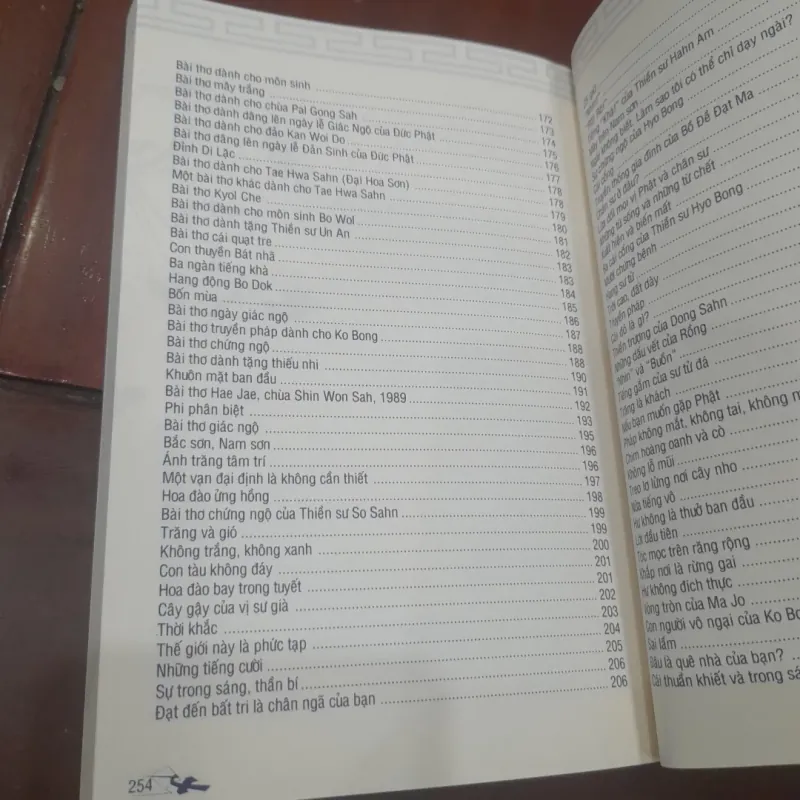 Bài thơ dành cho môn sinh 172
Bài thơ mây trắng 173
Bài thơ dành cho chùa Pal Gong Sah 174
Bài thơ dành dâng lên ngày lễ Giác Ngộ của Đức Phật 175
Bài thơ dành cho đảo Kan Wol Do 176
Bài thơ dâng lên ngày lễ Đản Sinh của Đức Phật 177
Đỉnh Di Lặc 178
Bài thơ dành cho Tae Hwa Sahn (Đại Hoa Sơn) 178
Một bài thơ khác dành cho Tae Hwa Sahn 179
Bài thơ Kyol Che 180
Bài thơ dành cho môn sinh Bo Wol 181
Bài thơ dành tặng Thiền sư Un An 182
Bài thơ cái quạt tre 183
Con thuyền Bát nhã 183
Ba ngàn tiếng khả 184
Hang động Bo Dok 185
Bốn mùa 186
Bài thơ ngày giác ngộ 187
Bài thơ truyền pháp dành cho Ko Bong 188
Bài thơ chứng ngộ 188
Bài thơ dành tặng thiếu nhi 190
Khuôn mặt ban đầu 191
Bài thơ Hae Jae, chùa Shin Won Sah, 1989 192
Phi phân biệt 193
Bài thơ giác ngộ 195
Bắc sơn, Nam sơn 196
Ánh trăng tâm trí 196
Một vạn đại định là không cần thiết 197
Hoa đào ửng hồng 198
Bài thơ chứng ngộ của Thiền sư So Sahn 199
Trăng và gió 199
Không trắng, không xanh 200
Con tàu không đáy 201
Hoa đào bay trong tuyết 201
Cây gậy của vị sư già 202
Thời khắc 203
Thế giới này là phức tạp 204
Những tiếng cười 205
Sự trong sáng, thần bí 206
Đạt đến bất tri là chân ngã của bạn 206
254
của Thiền sư Hahn Am
không biết. Làm sao tôi có thể chỉ dạy ngài?
ngộ của Hyo Bong
thống gia đình của Bồ Đề Đạt Ma
đổi mọi vị Phật và chân sư
từ sống và những từ chết
hiện và biến mất
cổng của Thiền sư Hyo Bong
chứng bệnh
Hang sư tử
Trời cao, đất dày
Truyền pháp
Cái đó là gì?
Thiền trượng của Dong Sahn
Những dấu vết của Rồng
và "Buồn"
Tiếng gầm của sư tử đá
Trăng là khách
Nếu bạn muốn gặp Phật
Pháp không mắt, không tai, không
Chim hoàng oanh và cò
Không lỗ mũi
Treo lơ lửng nơi cây nho
Nửa tiếng vỗ
Hư không là thuở ban đầu
Lời đầu tiên
Tóc mọc trên răng rộng
Khắp nơi là rừng gai
Hư không đích thực
Vòng tròn của Ma Jo
Con người vô ngại của Ko
Sai lầm
Đâu là quê nhà của bạn?
Cái thuần khiết và trong